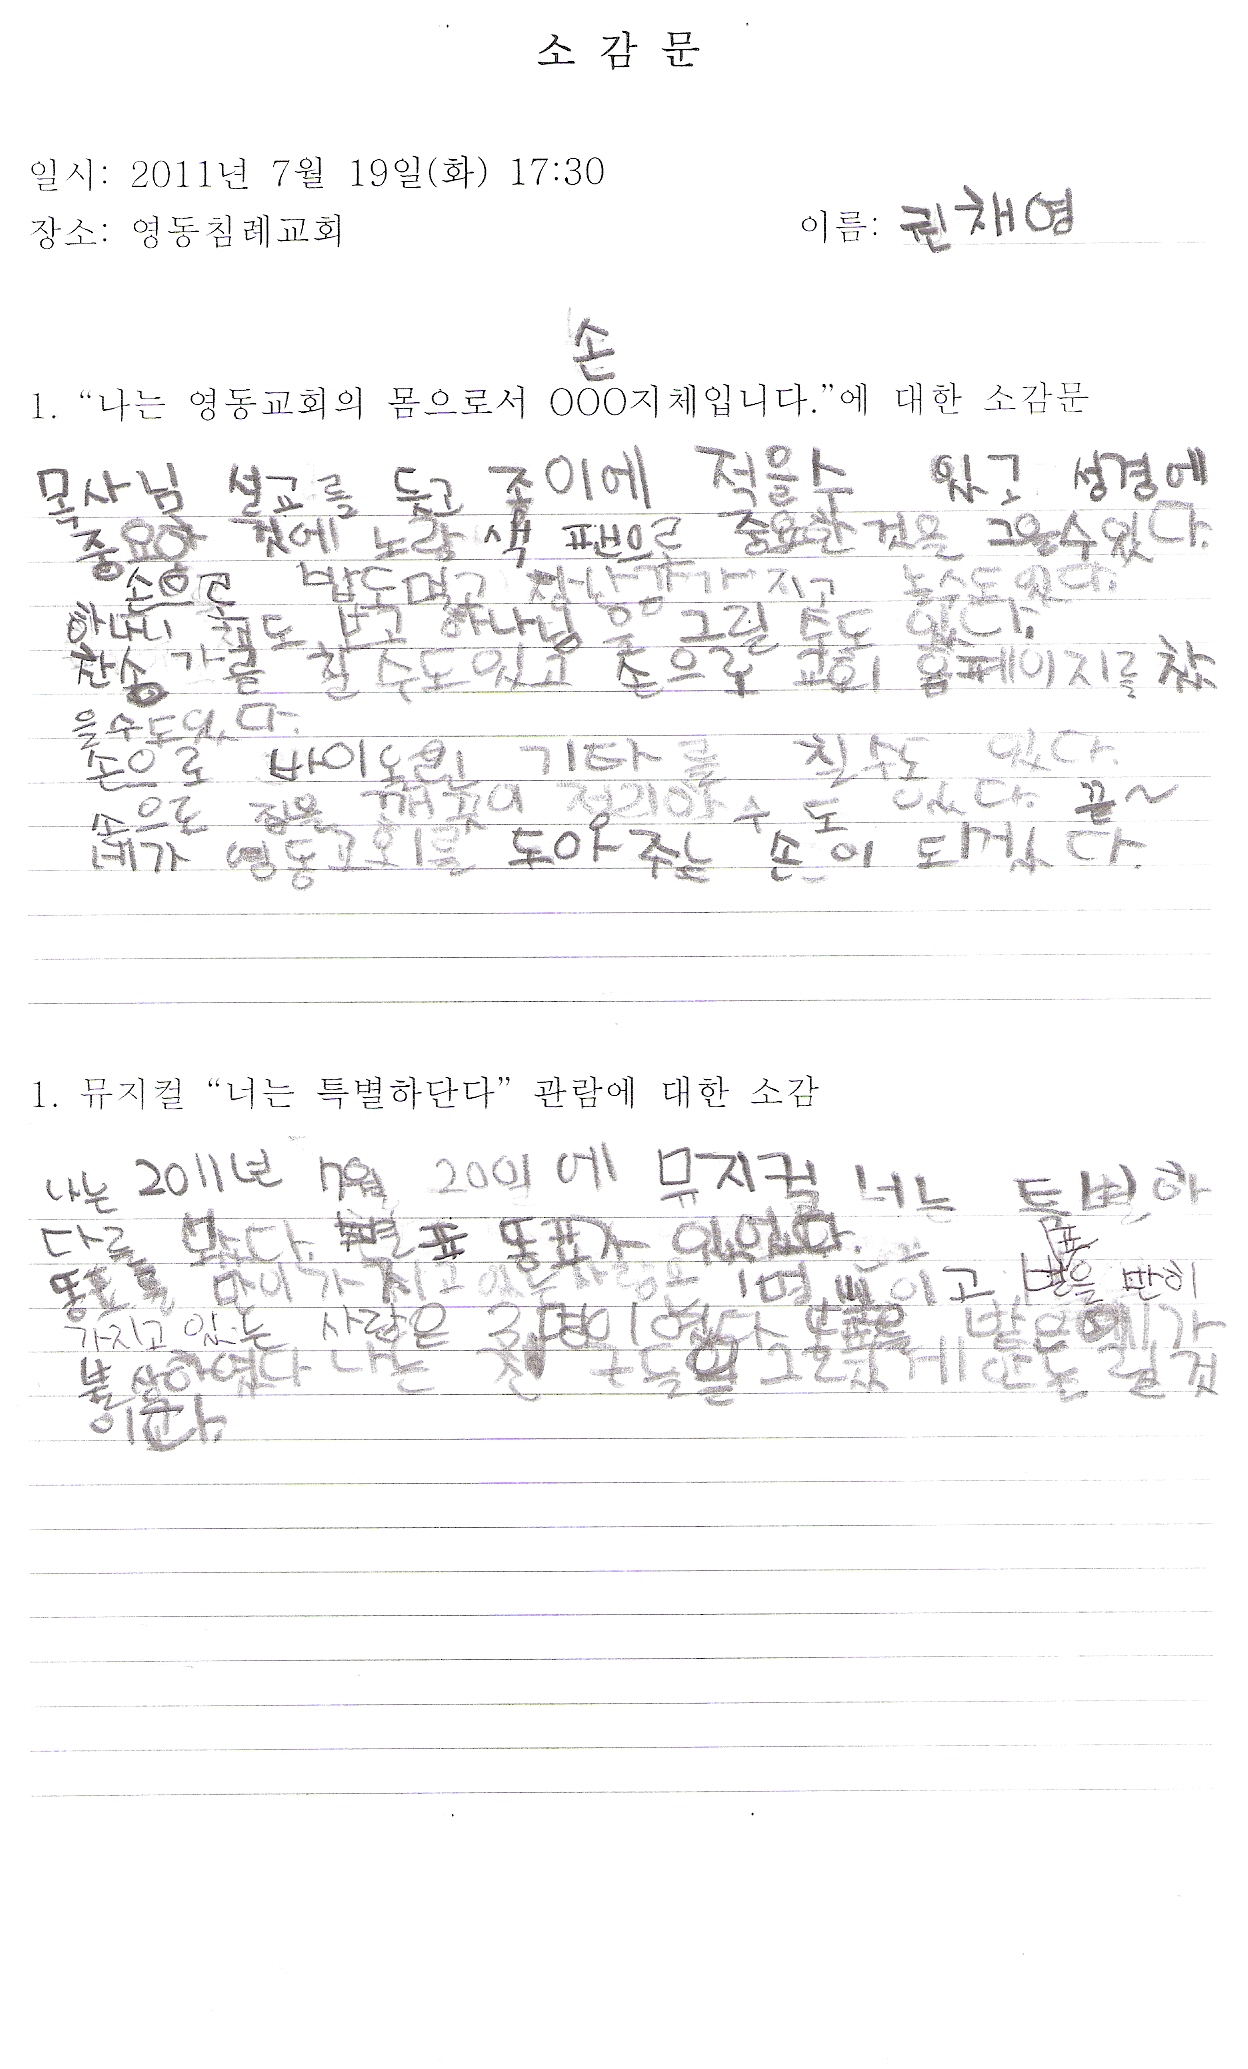 소 감 문
일시: 2011년 7월 19일(화) 17:30
장소: 영동침례교회
이름: 권채영
손
1. “나는 영동교회의 몸으로서 OOO지체입니다.”에 대한 소감문
목사님 설교를 듣고 종이에 적을수 있고 성경에
중요한 것에 노랑 색 팬으로 중요한 것을 그을수있다.
손으로 밥도먹고 장난감가지고 놀수도있다.
책도 보고 하나님을 그릴 수도 있다.
찬송가를 칠 수도있고 손으로 교회 홈페이지를 찾
을수도있다.
손으로 바이올린 기타를 칠수도 있다.
손으로 집을 깨끗이 정리할 수 도 있다. 끝~
네가 영동교회를 도아 주는 손이 되겠다.
1. 뮤지컬 “너는 특별하단다” 관람에 대한 소감
나는 2011년 7월 20일에 뮤지컬 너는 특별하
다를 보았다. 별표 똥표가 있었다.
표
똥표를 많이 가지고 있는 사람은 1명 이고 별을 많이
가지고 있는 사람은 3명이였다
불쌍하였다 나는 친구들을 그렇게 안놀릴 것
이다.